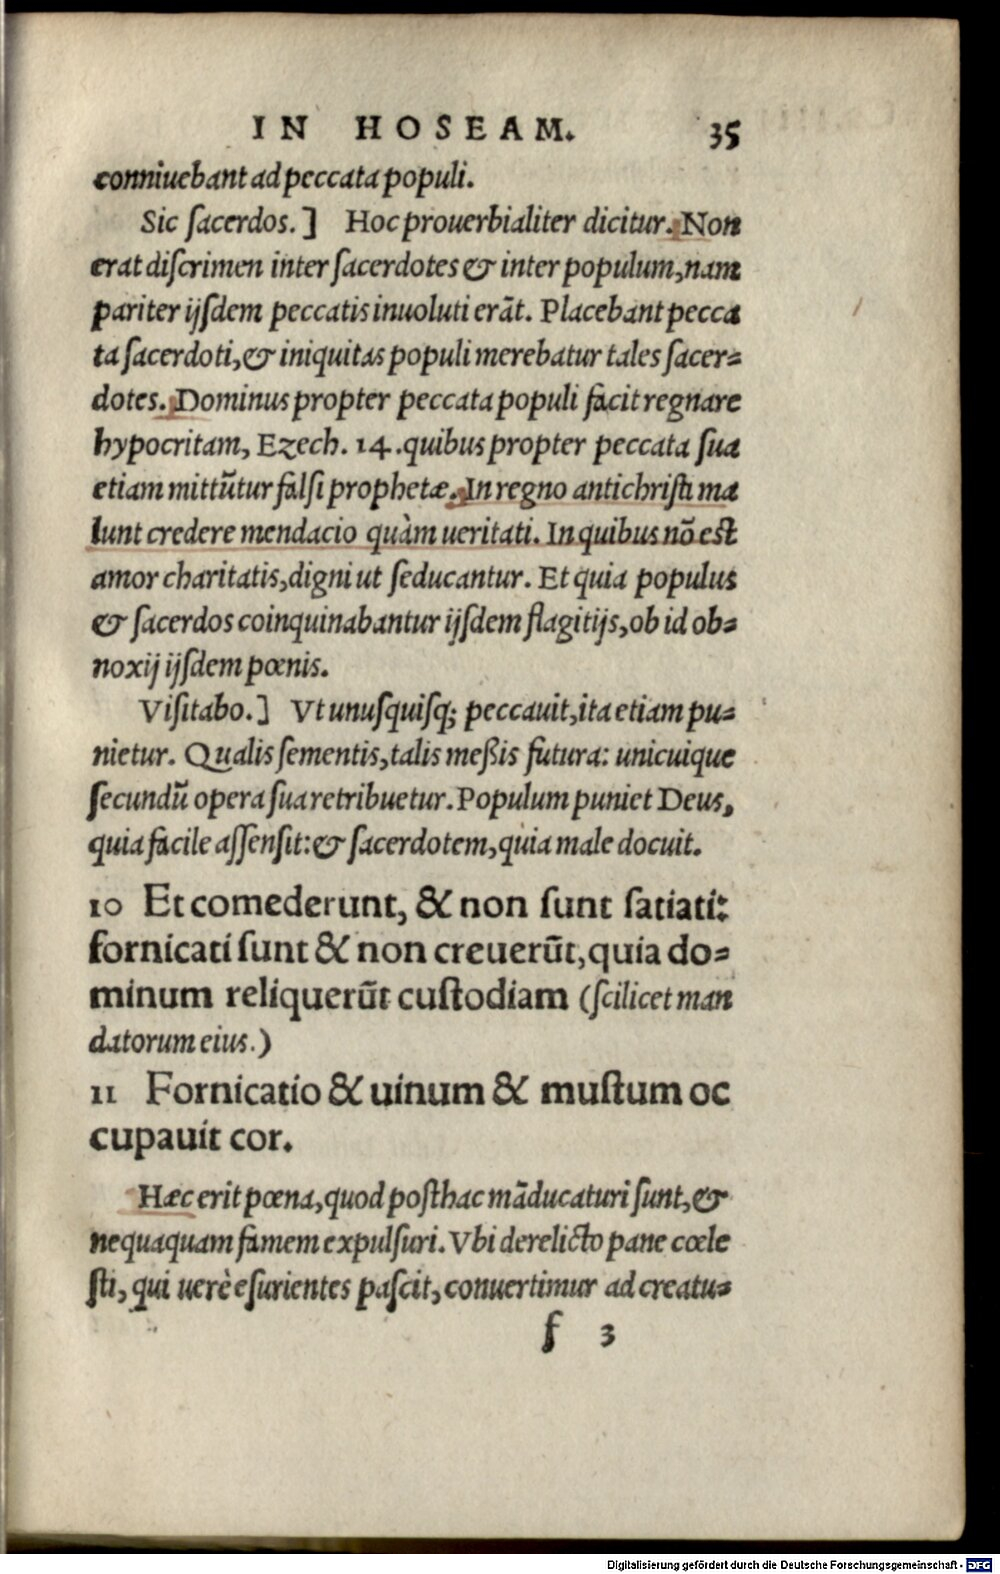 IN HOSEAM. 35
conniuebant ad peccata populi.
Sic ſacerdos.] Hoc prouerbialiter dicitur. Non
erat diſcrimen inter ſacerdotes & inter populum, nam
pariter ijſdem peccatis inuoluti erãt. Placebant pecca
ta ſacerdoti, & iniquitas populi merebatur tales ſacer-
dotes. Dominus propter peccata populi facit regnare
hypocritam, Ezech. 14. quibus propter peccata ſua
etiam mittũtur falſi prophetæ. In regno antichriſti ma
lunt credere mendacio quàm ueritati. In quibus nõ est
amor charitatis, digni ut ſeducantur. Et quia populus
& ſacerdos coinquinabantur ijſdem flagitijs, ob id ob-
noxij ijſdem pœnis.
Viſitabo.] Vt unuſquiſq; peccauit, ita etiam pu-
nietur. Qualis ſementis, talis meßis futura: unicuique
ſecundũ opera ſua retribuetur. Populum puniet Deus,
quia facile aſſenſit: & ſacerdotem, quia male docuit.
10 Et comederunt, & non ſunt ſatiati:
fornicati ſunt & non creuerũt, quia do-
minum reliquerũt cuſtodiam (ſcilicet man
datorum eius.)
11 Fornicatio & uinum & muſtum oc
cupauit cor.
Hæc erit pœna, quod poſthac mãducaturi ſunt, &
nequaquam famem expulſuri. Vbi derelicto pane cœle
ſti, qui uerè eſurientes paſcit, conuertimur ad creatu-
f 3
Digitalisierung gefördert durch die Deutsche Forschungsgemeinschaft - DFG